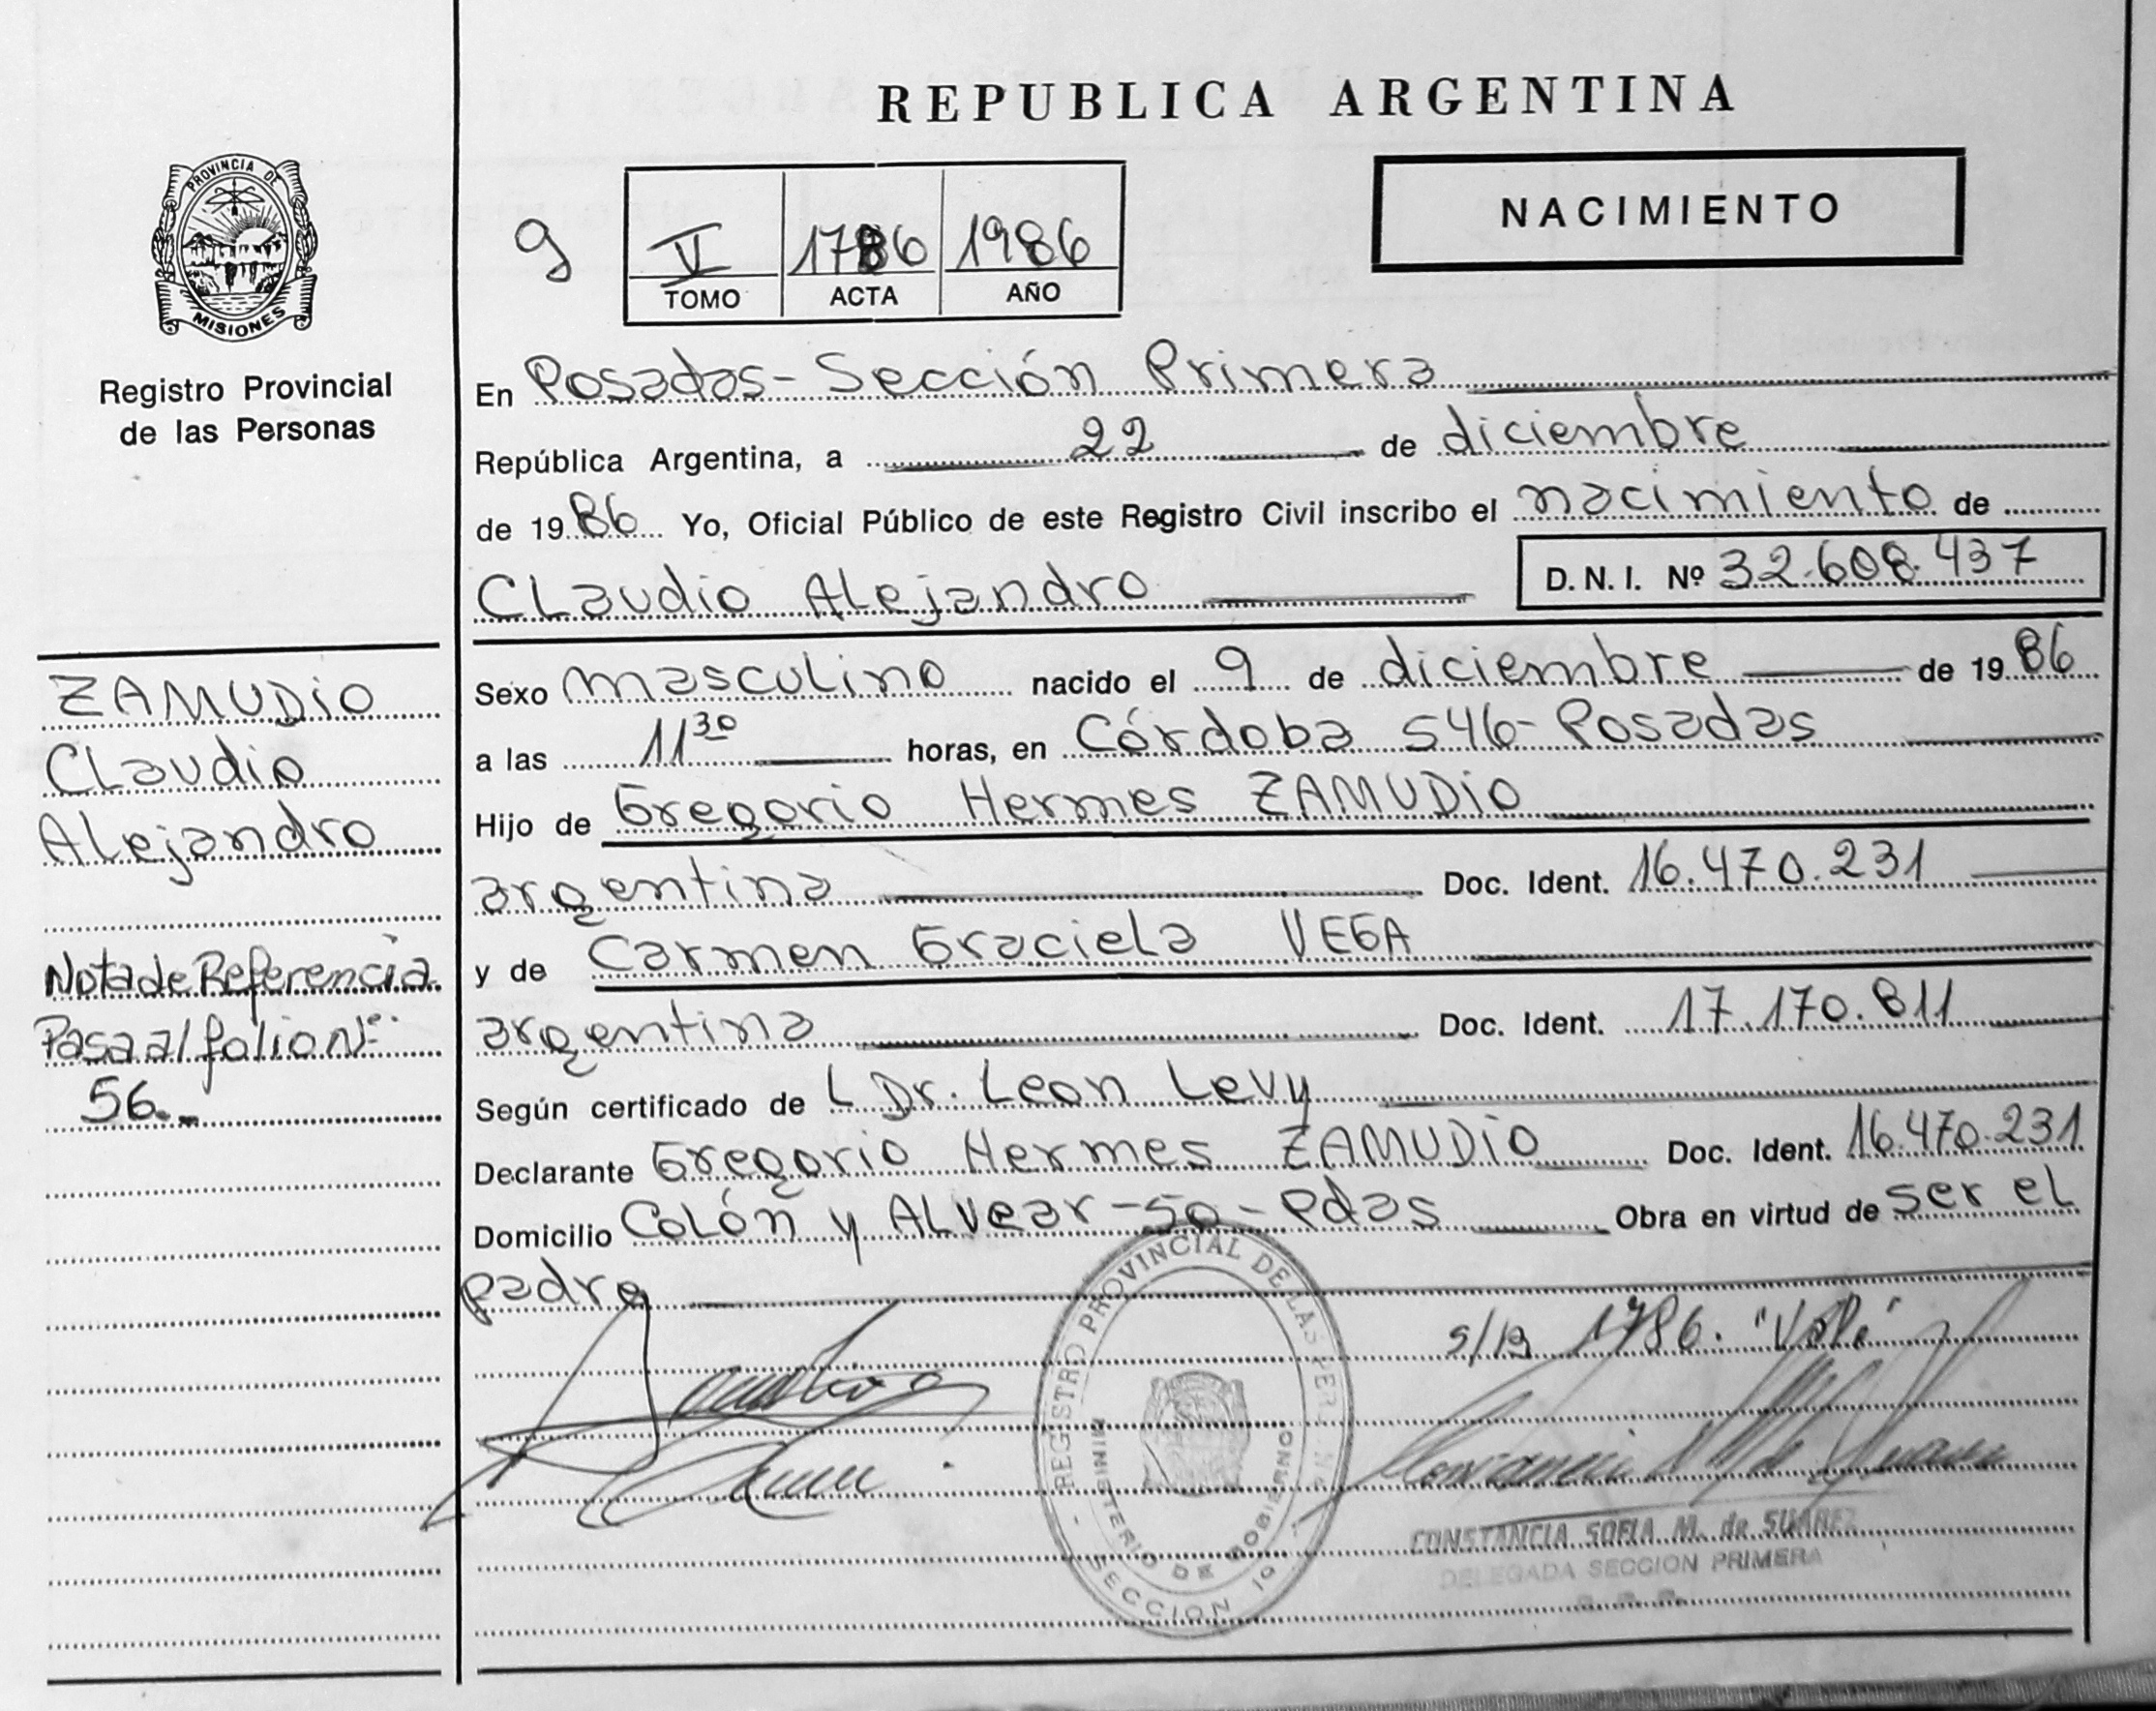 REPUBLICA ARGENTINA
PROVINCIA DE
MISIONES
Registro Provincial
de las Personas
9
V 1786 1986
TOMO ACTA AÑO
NACIMIENTO
En Posadas-Sección Primera
República Argentina, a 22 de diciembre
de 1986 Yo, Oficial Público de este Registro Civil inscribo el nacimiento de
Claudio Alejandro
D. N. I. Nº 32.608.437
ZAMUDIO
Claudio
Alejandro
Nota de Referencia
Pasa al folio Nº
56.-
Sexo masculino nacido el 9 de diciembre de 1986
a las 11 30 horas, en Córdoba 546-Posadas
Hijo de Gregorio Hermes ZAMUDIO
argentina Doc. Ident. 16.470.231
y de Carmen Graciela VEGA
argentina Doc. Ident. 17.170.811
Según certificado de L Dr. Leon Levy
Declarante Gregorio Hermes ZAMUDIO Doc. Ident. 16.470.231
Domicilio Colón y Alvear-50-Pdas Obra en virtud de ser el
padre
1786.
REGISTRO PROVINCIAL DE LAS PER
MINISTERIO DE GOBIERNO
SECCION 1º
CONSTANCIA SOFIA M. de SUAREZ
DELEGADA SECCION PRIMERA